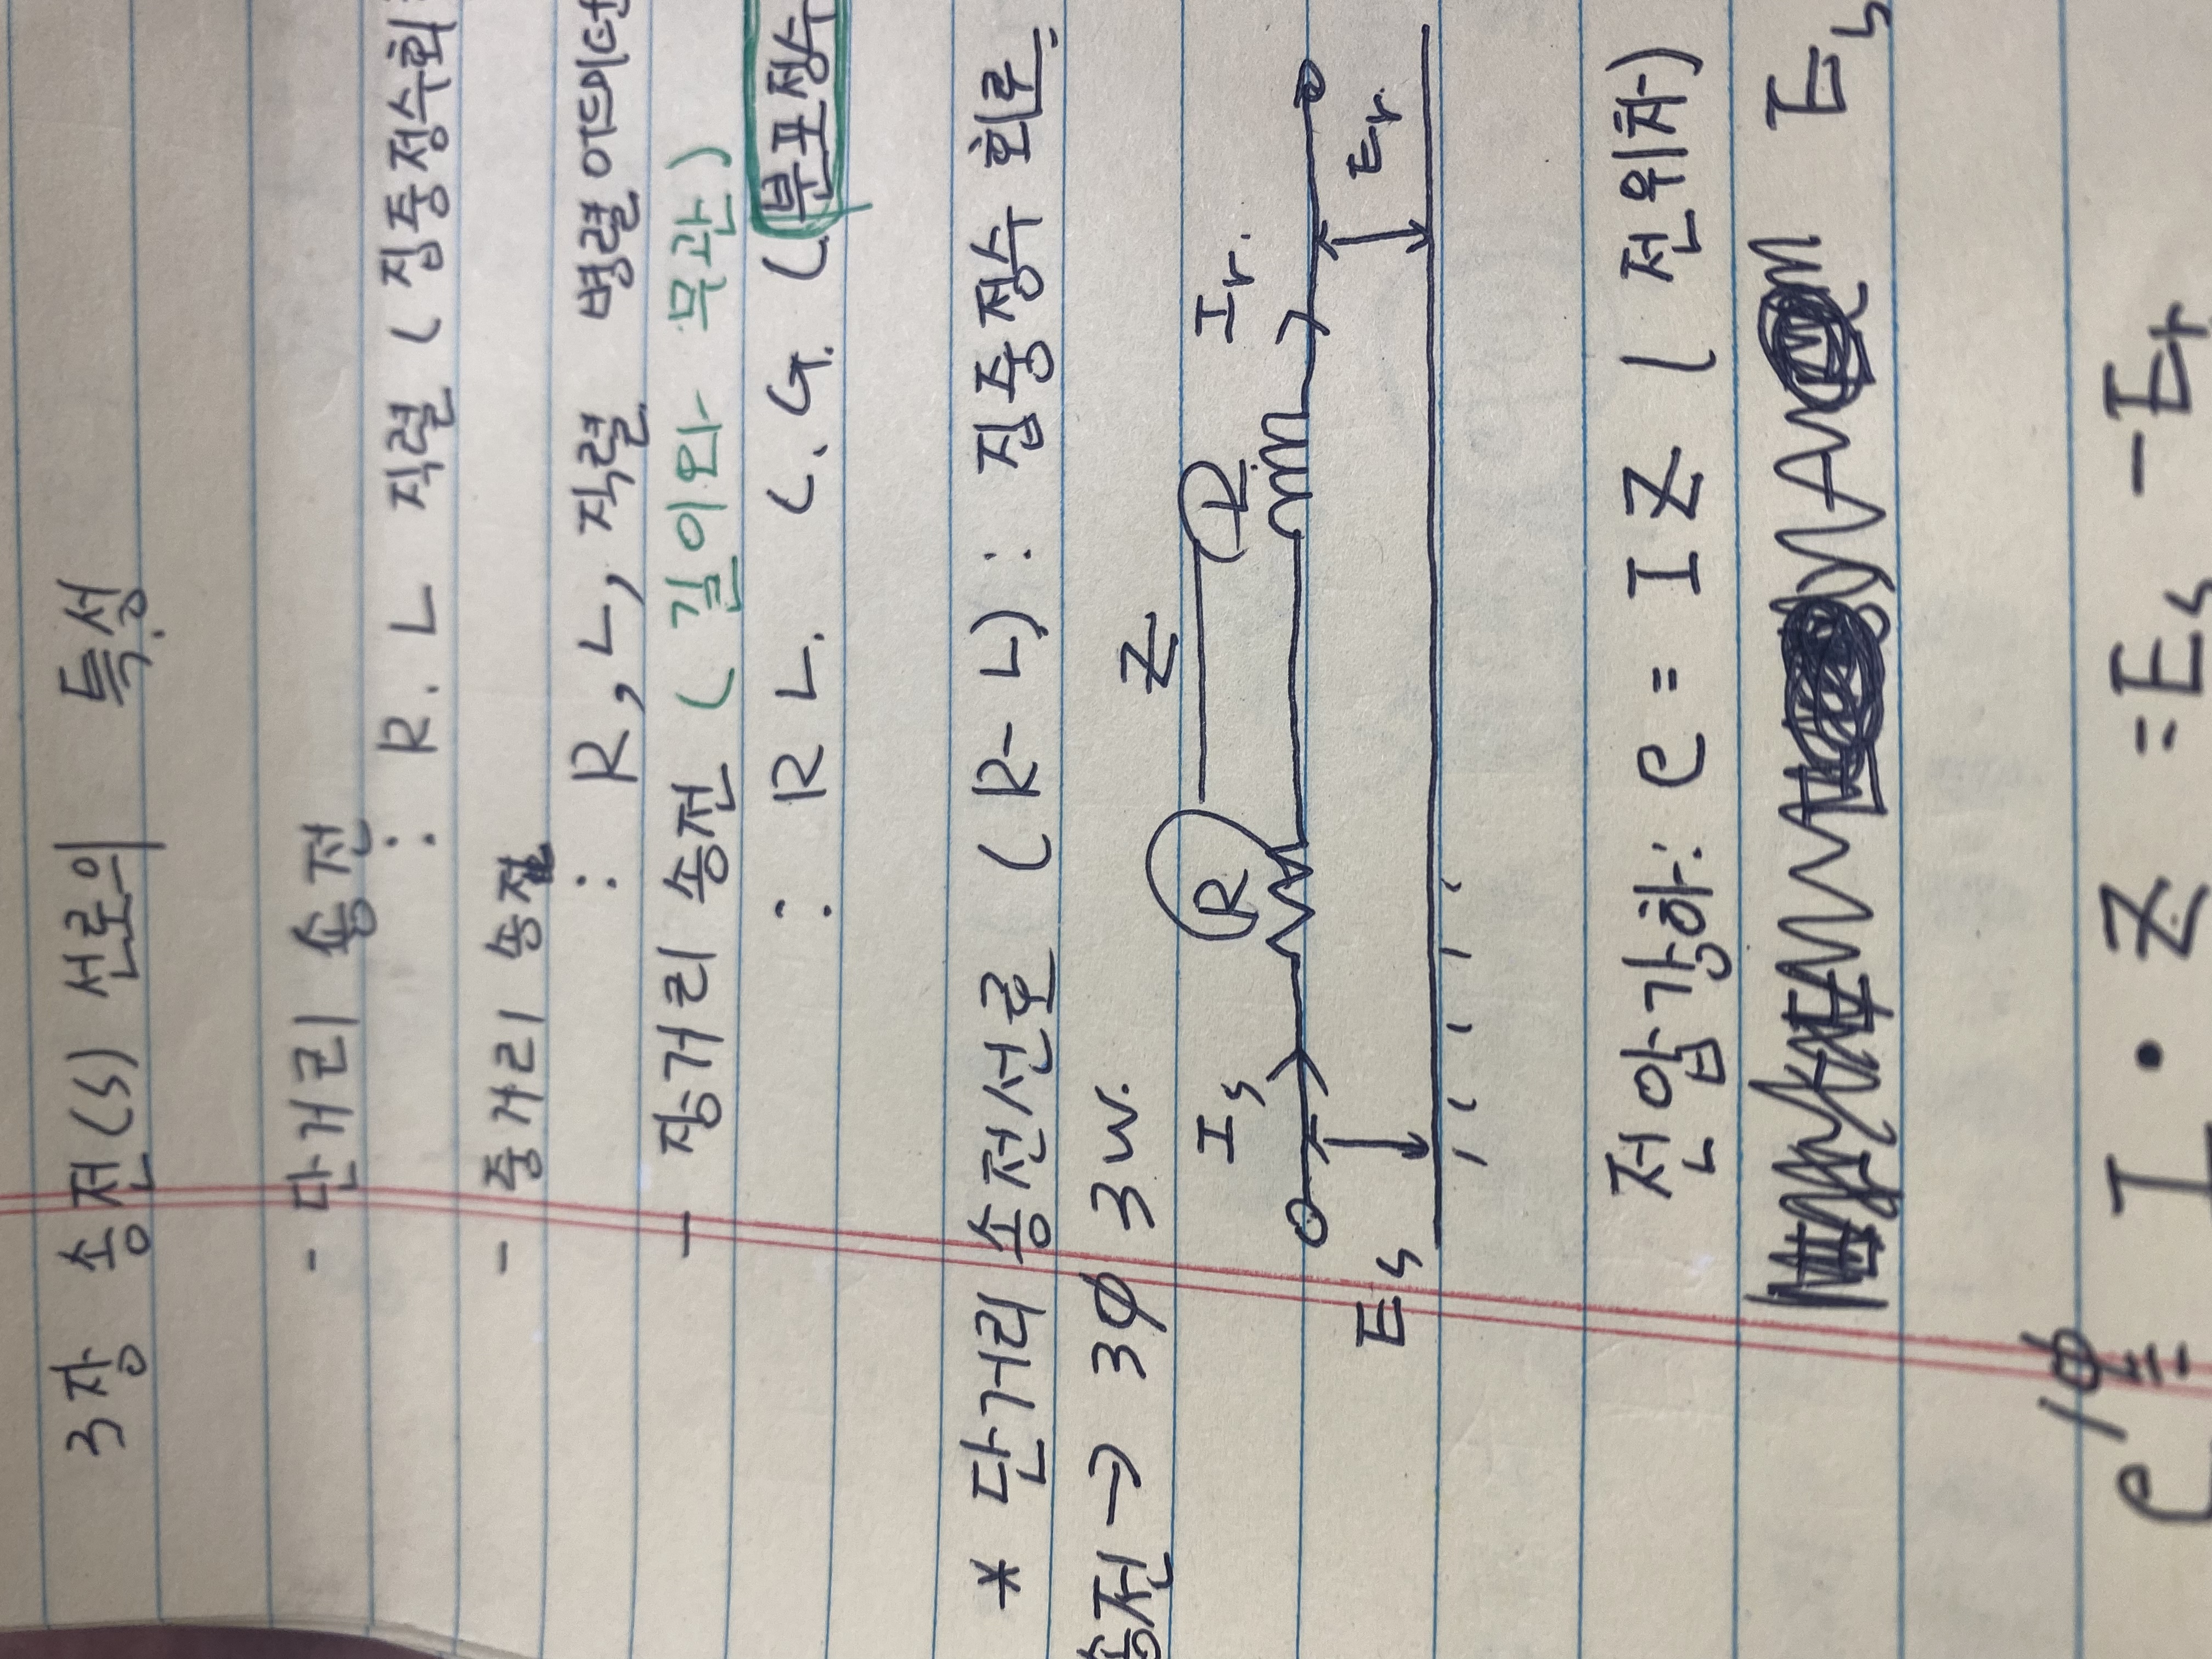 3장 송전(s) 선로의 특성
- 단거리 송전
: R. L 직렬 (집중정수회
- 중거리 송전
: R, L, 직렬 병렬어드미턴
- 장거리 송전 (길이와 무관)
: R L. C. G. (분포정수
* 단거리 송전선로 (R-L): 집중정수 회로
송전→ 3∅ 3W.
Z
Is R L Ir.
Es Er
전압강하: e = I Z (전위차)
Es
e1∅ = I · Z = Es - Er